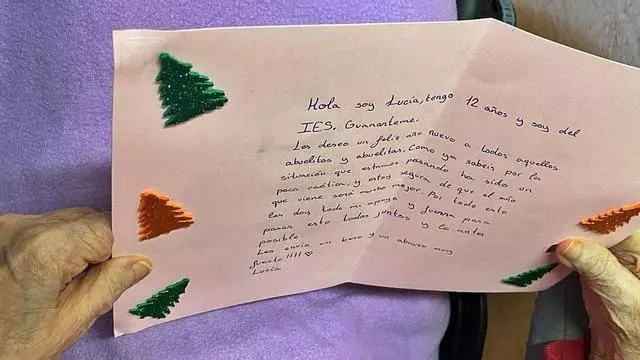 Hola soy Lucía, tengo 12 años y soy del
IES. Guanarteme.
Les deseo un feliz año nuevo a todos aquellos
abuelitos y abuelitas. Como ya sabeis por la
situación que estamos pasando ha sido un
poco caótico, y estoy segura de que el año
que viene será mucho mejor. Por todo esto
les doy todo mi apoyo y fuerza para
pasar esto todos juntos y lo antes
posible
Les envío un beso y un abrazo muy
fuerte!!!! ♡
Lucía